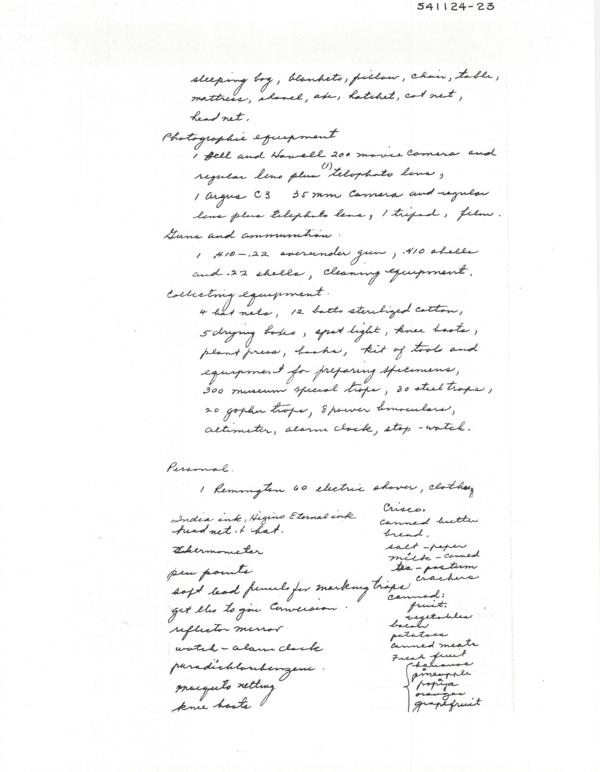 541124-23
sleeping bag, blankets, pillow, chair, table,
mattress, shovel, axe, hatchet, cot net,
head net.
Photographic equipment
1 Bell and Howell 200 movie camera and
regular lens plus (1) telephoto lens,
1 Argus C3 35 mm camera and regular
lens plus telephoto lens, 1 tripod, film.
Guns and ammunition.
1 .410-.22 overunder gun, .410 shells
and .22 shells, cleaning equipment.
Collecting equipment.
4 bat nets, 12 batts sterilized cotton,
5 drying boxes, spot light, knee boots,
plant press, books, kit of tools and
equipment for preparing specimens,
300 museum special traps, 30 steel traps,
20 gopher traps, 8 power binoculars,
altimeter, alarm clock, stop-watch.
Personal.
1 Remington 60 electric shaver, clothing
India ink, Higins Eternal ink
head net + hat.
thermometer
pen points
soft lead pencils for marking traps
get lbs to gm conversion.
reflector mirror
watch - alarm clock
paradichlorbenzene.
mosquito netting
knee boots
Crisco.
canned butter
bread.
salt - peper
milk - canned
tea - postum
crackers
canned:
fruit.
vegetables
bacon
potatoes
canned meats
Fresh fruit
bananas
pineapple
papija
oranges
grapefruit